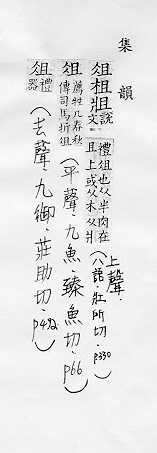 集韻
俎柤㽵 說文 禮俎也从半肉在且上或从木从爿
上聲.
(八語.壯所切.p330)
俎 薦牲几春秋傳司馬折俎
(平聲.九魚.臻魚切.p66)
俎 禮器
(去聲.九御.莊助切.p492)